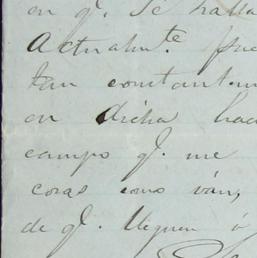 en qᵉ. se halla
Actualmᵗᵉ. pue
tan constantem
en dicha hac
campo qᵉ. me
cosas como ván,
de qᵉ. lleguen ó